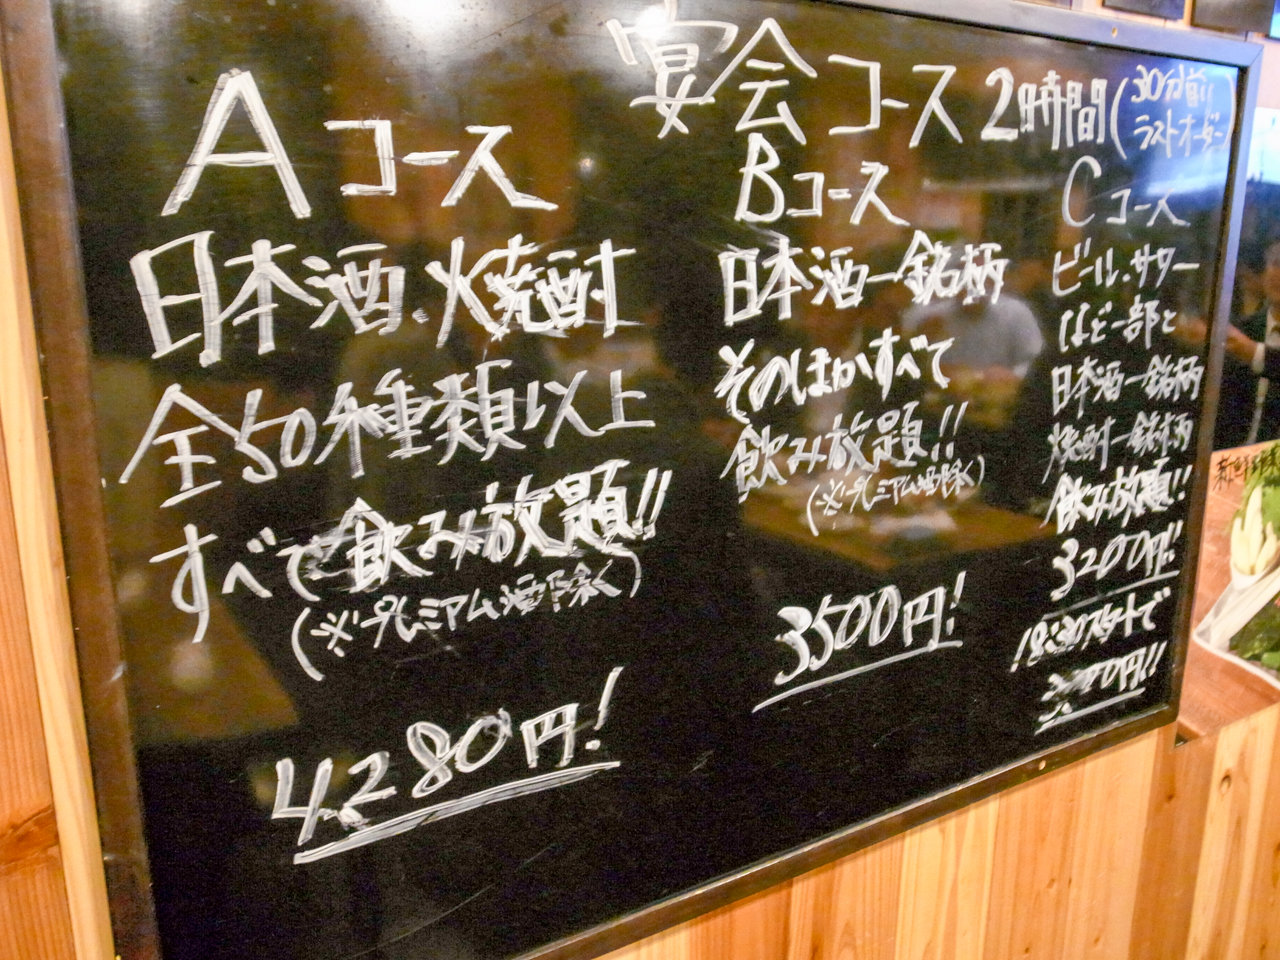 宴会コース 2時間(30分前ラストオーダー)
Aコース
日本酒・焼酎
全50種類以上
すべて飲み放題!!
(※プレミアム酒下除く)
4280円!
Bコース
日本酒一銘柄
そのほかすべて
飲み放題!!
(※プレミアム酒除く)
3500円!
Cコース
ビール・サワー
など一部と
日本酒一銘柄
焼酎一銘柄
飲み放題!!
3200円!!
18:30スタートで
円!!